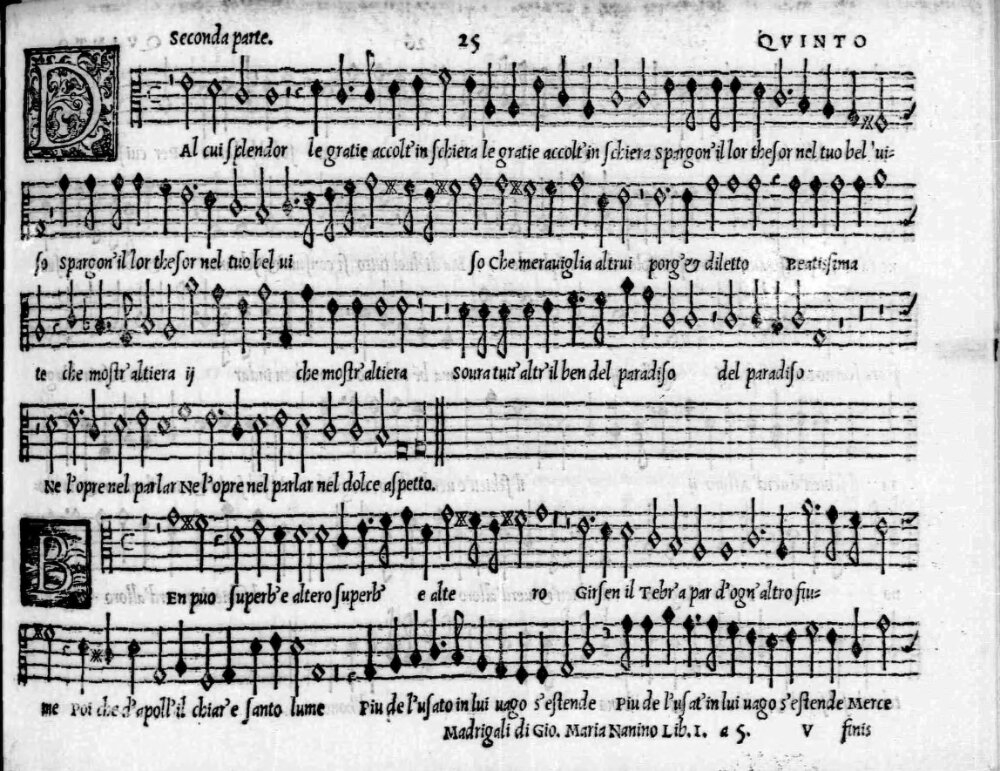 Seconda parte. 25 QVINTO
DAl cui ſplendor le gratie accolt'in ſchiera le gratie accolt'in ſchiera Spargon'il lor theſor nel tuo bel'ui=
ſo Spargon'il lor theſor nel tuo bel ui ſo Che merauiglia altrui porg'& diletto Beatiſsima
te che moſtr'altiera ij che moſtr'altiera Soura tutt'altr'il ben del paradiſo del paradiſo
Ne l'opre nel parlar Ne l'opre nel parlar nel dolce aſpetto.
BEn puo ſuperb'e altero ſuperb' e alte ro Girſen il Tebr'a par d'ogn'altro fiu=
me Poi che d'apoll'il chiar'e ſanto lume Piu de l'uſato in lui uago s'eſtende Piu de l'uſat'in lui uago s'eſtende Merce
Madrigali di Gio. Maria Nanino Lib. I. a 5. V finis